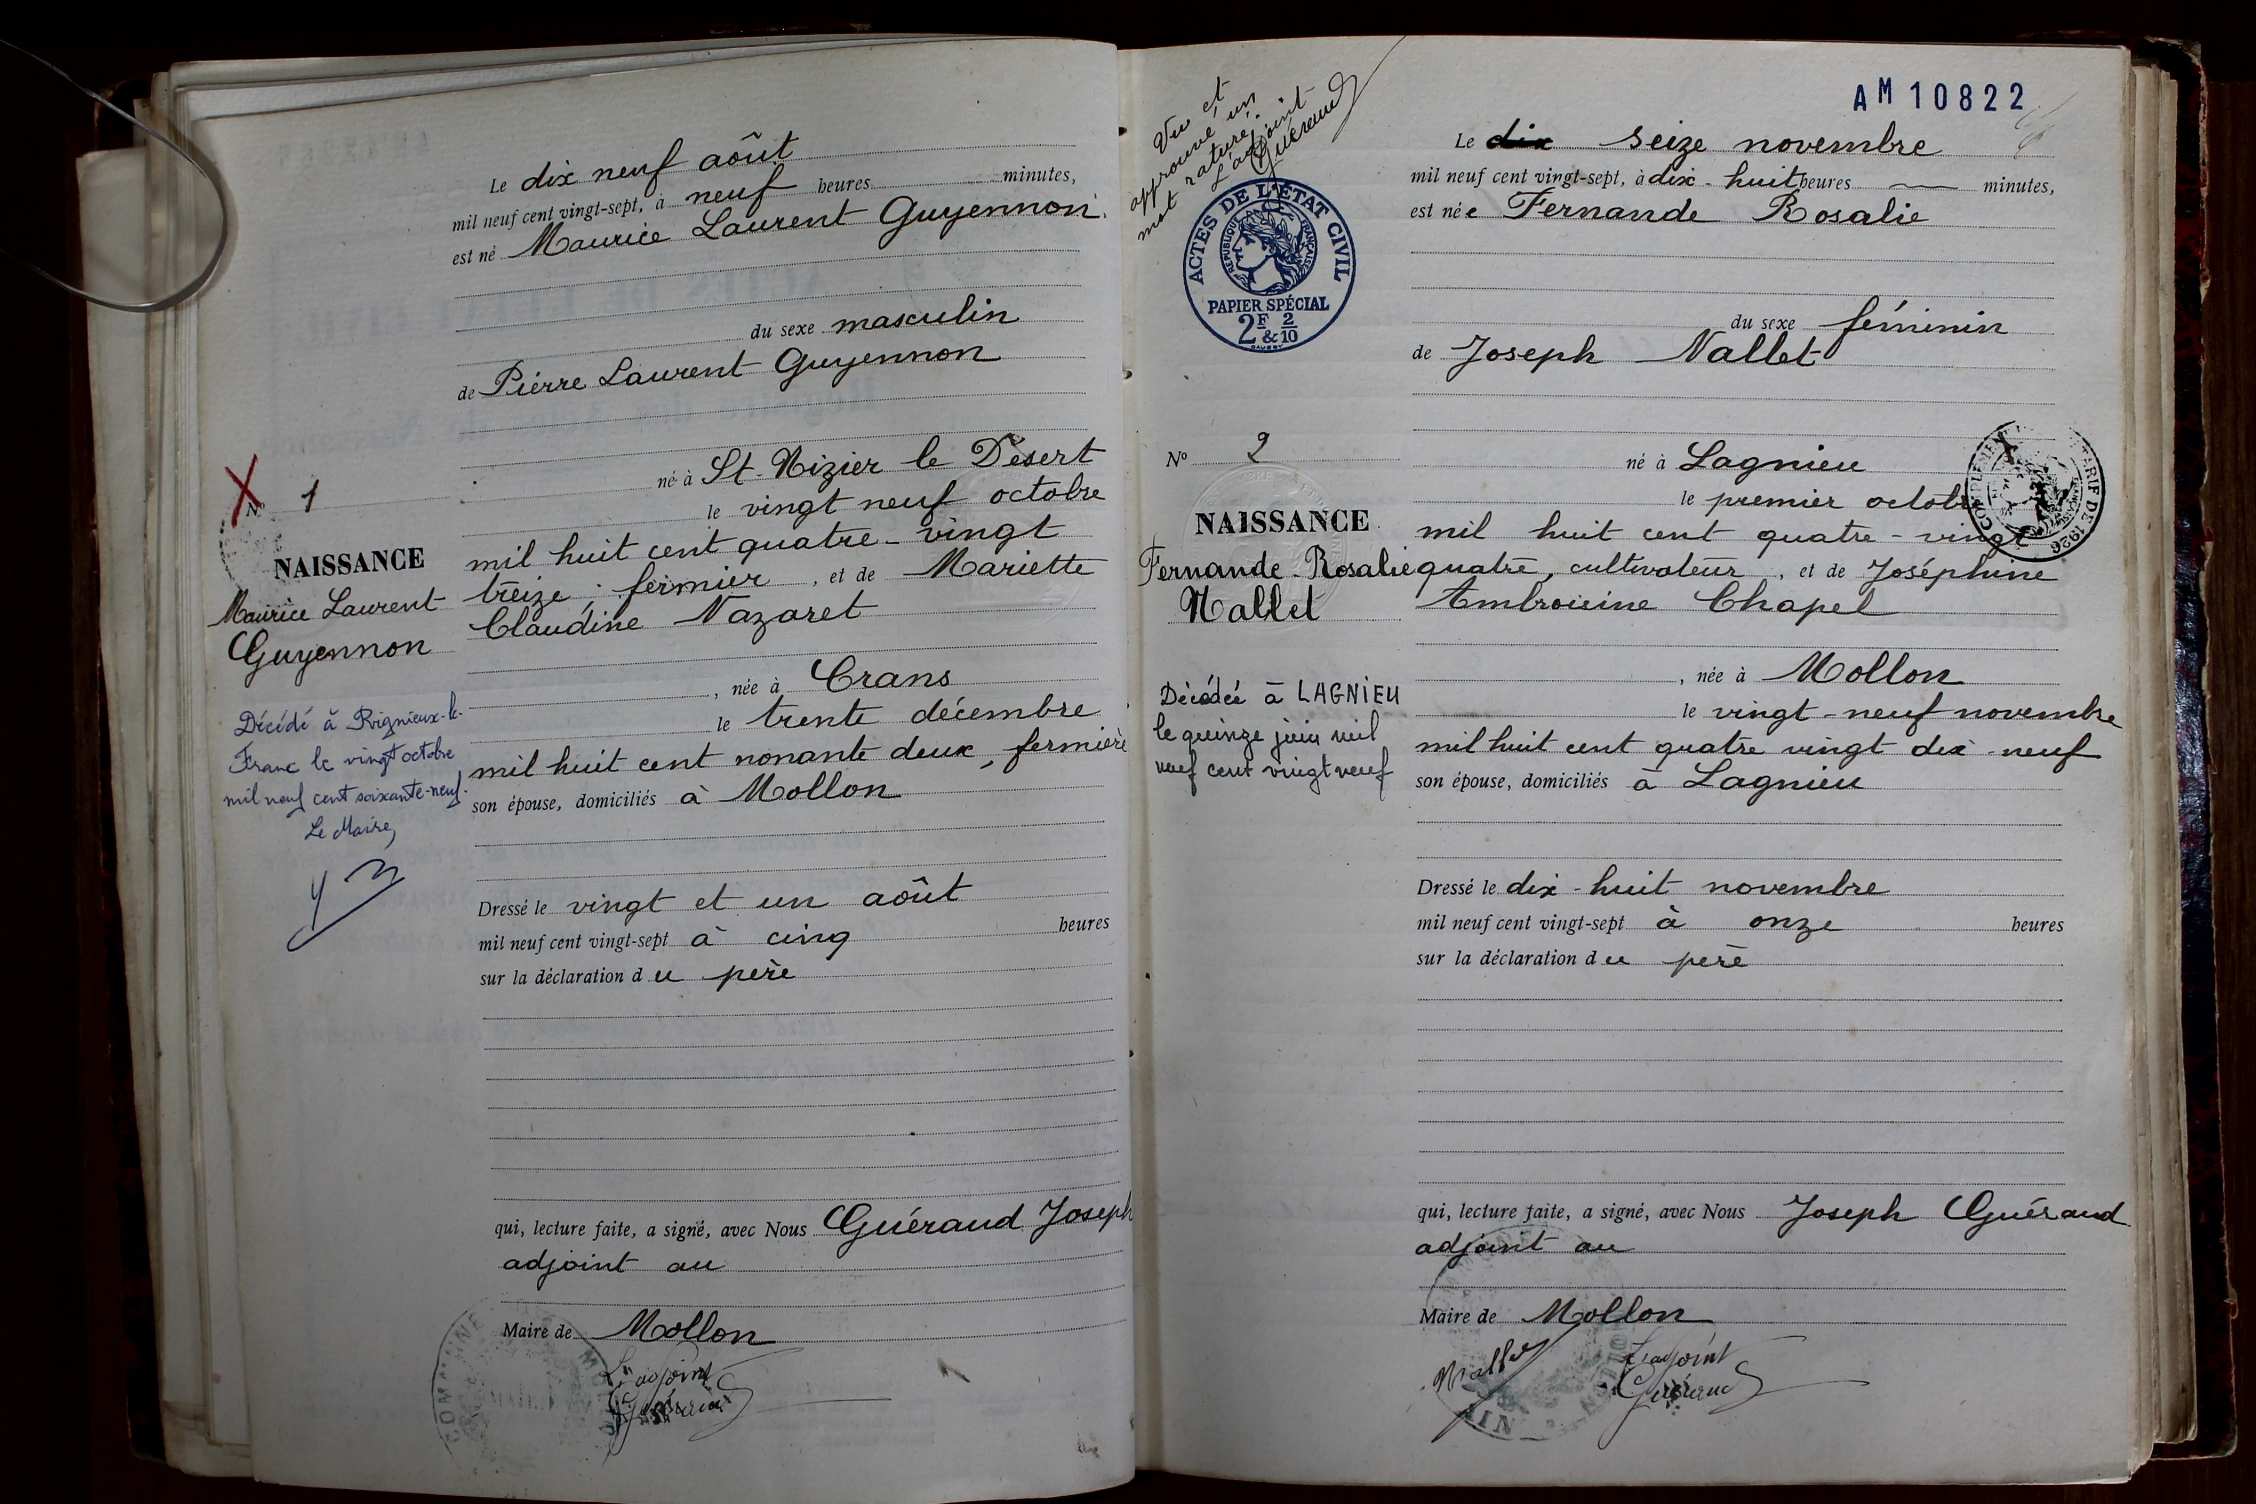 Le dix neuf août
mil neuf cent vingt-sept, à neuf heures minutes,
est né Maurice Laurent Guyennon
du sexe masculin
de Pierre Laurent Guyennon
né à St-Nizier le Désert
le vingt neuf octobre
mil huit cent quatre-vingt
treize, fermier, et de Mariette
Claudine Nazaret
, née à Crans
le trente décembre
mil huit cent nonante deux, fermière
son épouse, domiciliés à Mollon
Dressé le vingt et un août
mil neuf cent vingt-sept à cinq heures
sur la déclaration du père
qui, lecture faite, a signé, avec Nous Guéraud Joseph
adjoint au
Maire de Mollon
L'adjoint
Guéraud
COMMUNE
N° 1
NAISSANCE
Maurice Laurent
Guyennon
Décédé à Rignieux-le-
Franc le vingt octobre
mil neuf cent soixante-neuf.
Le Maire,
Vu et
approuvé un
mot raturé.
L'adjoint
Guéraud
ACTES DE L'ÉTAT CIVIL
RÉPUBLIQUE FRANÇAISE
PAPIER SPÉCIAL
2F & 2/10
N° 2
NAISSANCE
Fernande Rosalie
Nallet
Décédée à LAGNIEU
le quinze juin mil
neuf cent vingt neuf
AM10822
Le dix seize novembre
mil neuf cent vingt-sept, à dix-huit heures — minutes,
est née Fernande Rosalie
du sexe féminin
de Joseph Nallet
né à Lagnieu
le premier octobre
mil huit cent quatre-vingt
quatre, cultivateur, et de Joséphine
Ambroisine Chapel
, née à Mollon
le vingt-neuf novembre
mil huit cent quatre vingt dix-neuf
son épouse, domiciliés à Lagnieu
Dressé le dix-huit novembre
mil neuf cent vingt-sept à onze heures
sur la déclaration du père
qui, lecture faite, a signé, avec Nous Joseph Guéraud
adjoint au
Maire de Mollon
Nallet
L'adjoint
Guéraud
AIN
TARIF DE 1926